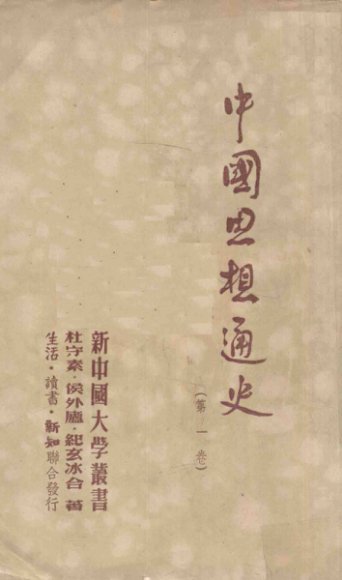 中國思想通史
(第一卷)
新中國大學叢書
杜守素·侯外廬·紀玄冰合著
生活·讀書·新知聯合發行